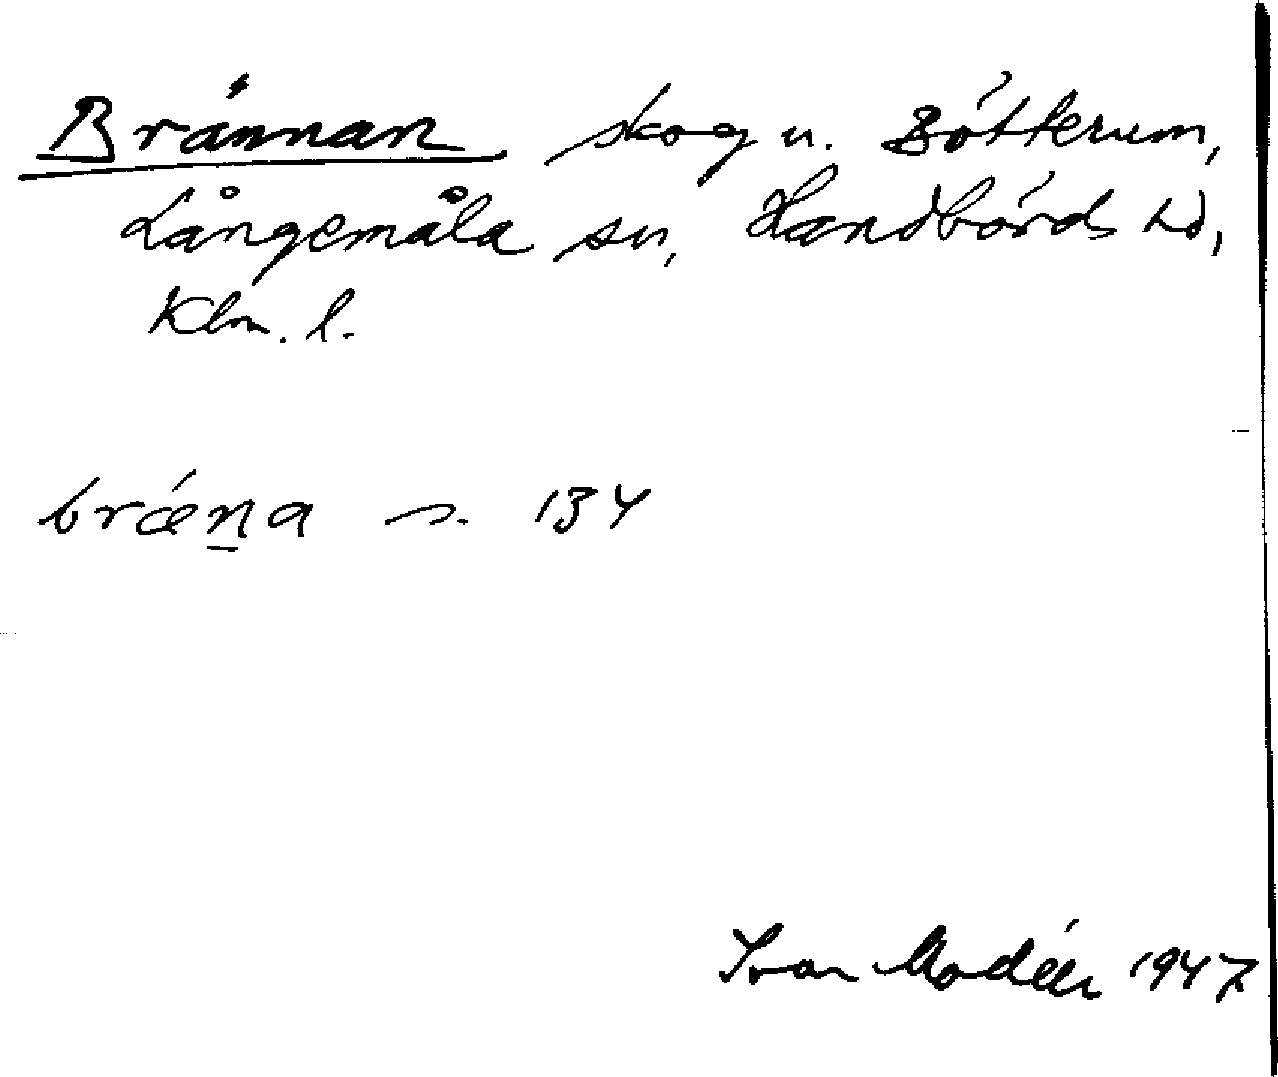 Brännan skog u. Bötterum,
Långemåla sn, Handbörds hd,
Klm. l.
bræ´n̲a s. 134
Ivar Modéer 1947